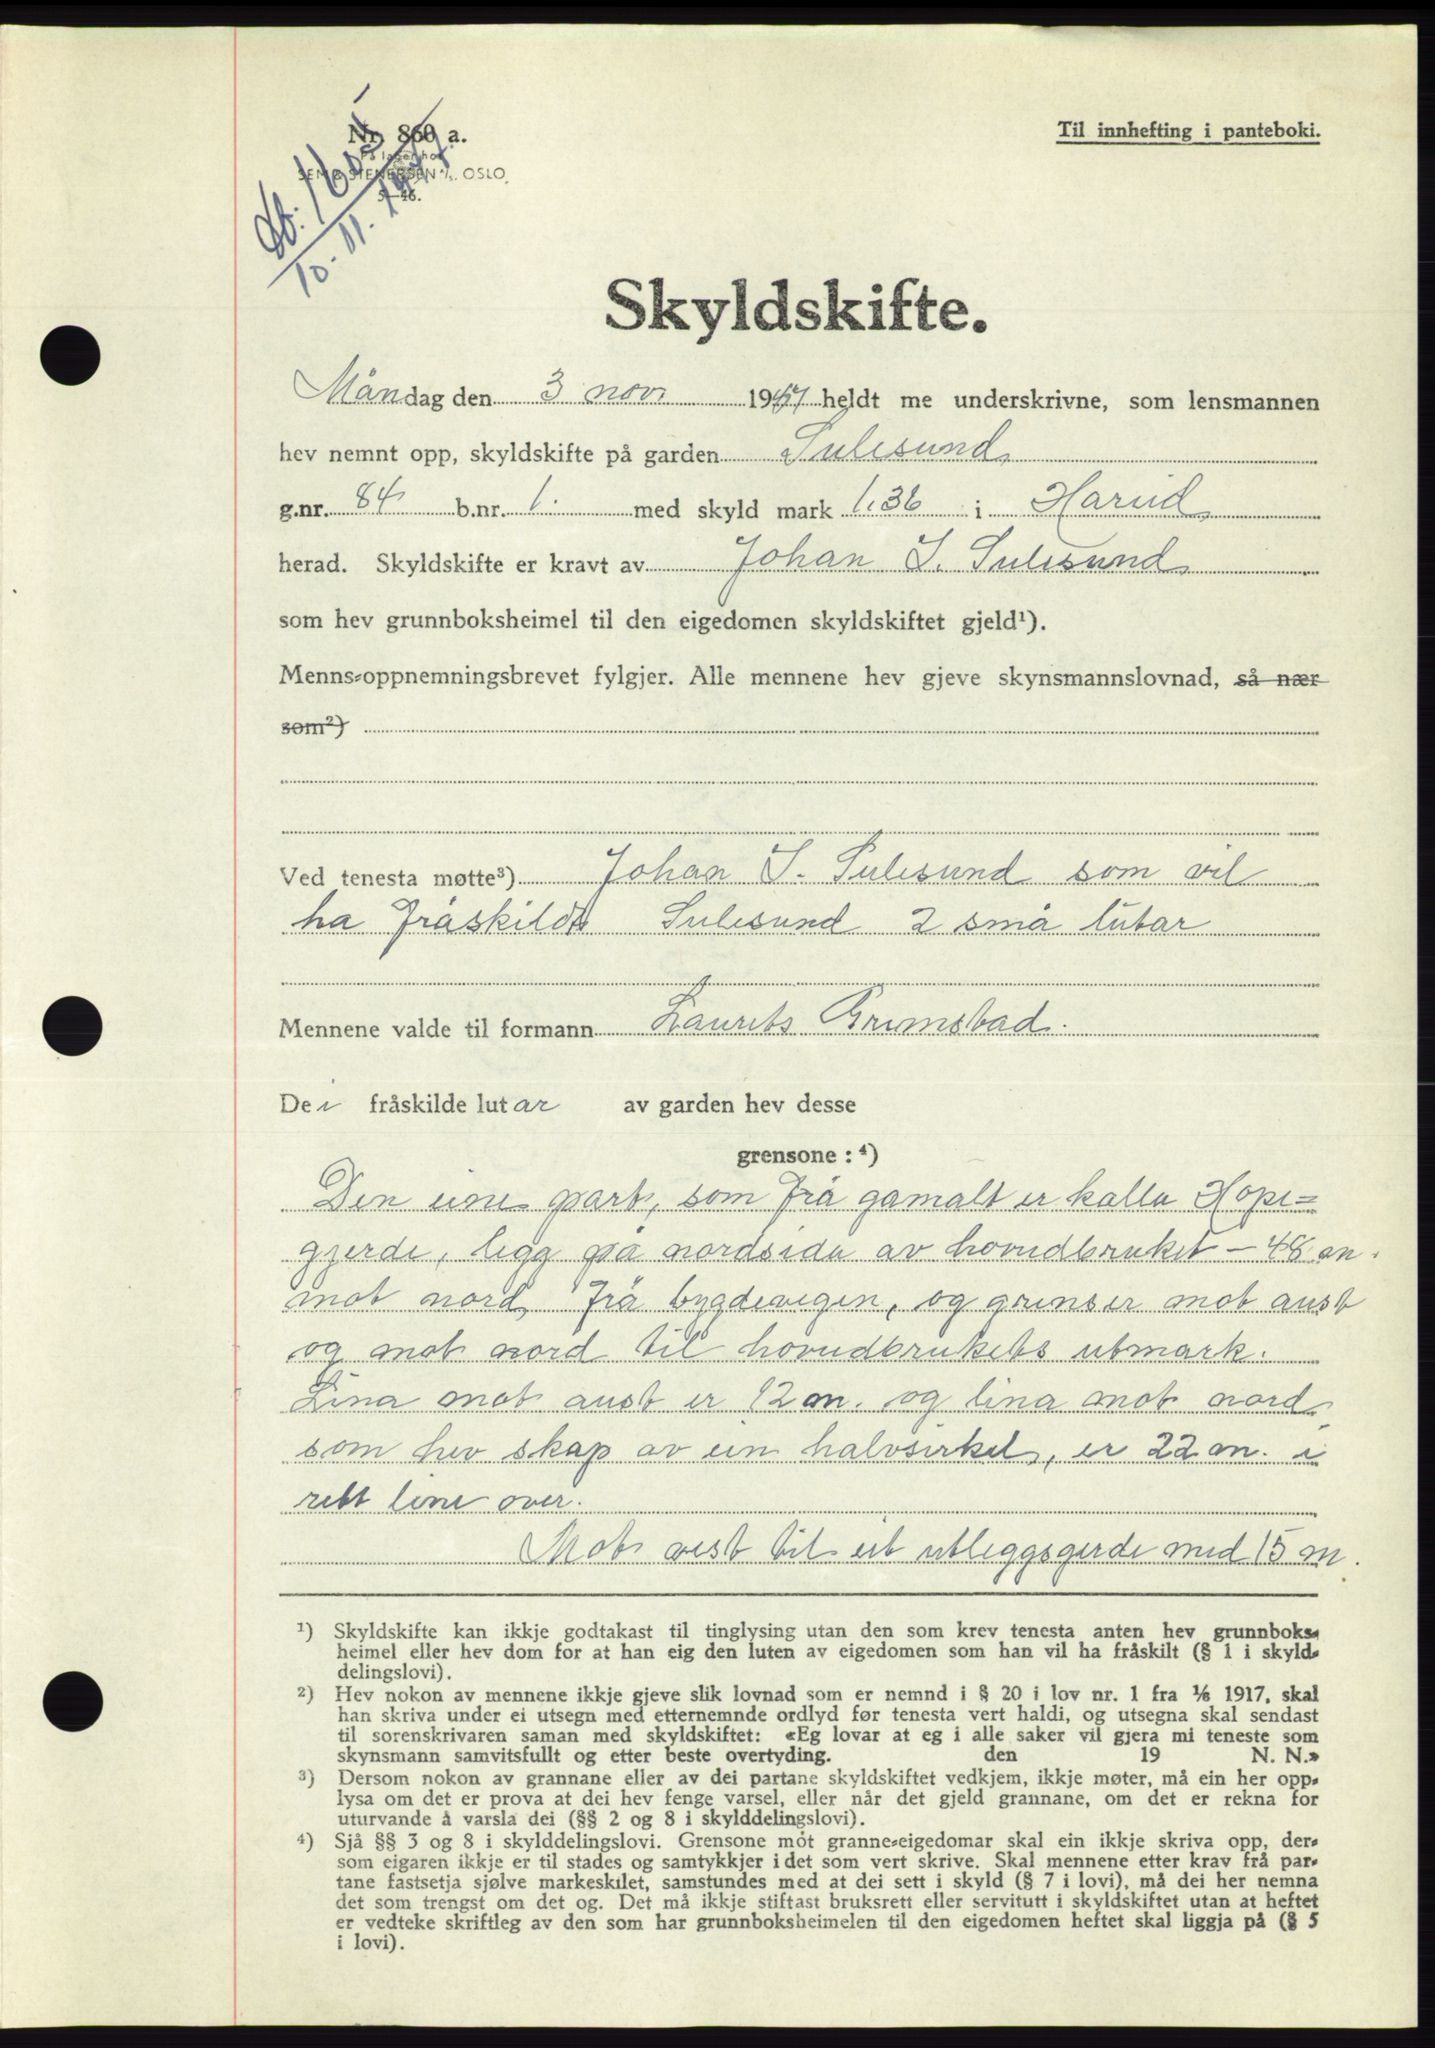 Nr. 860 a.
På lager hos
SEM & STENERSEN A/S, OSLO
5—46.
Til innhefting i panteboki.
Db. 1605
10.11.1947
Skyldskifte.
Måndag den 3 nov. 1947 heldt me underskrivne, som lensmannen
hev nemnt opp, skyldskifte på garden Sulesund
g.nr. 84 b.nr. 1. med skyld mark 1,36 i Hareid
herad. Skyldskifte er kravt av Johan I. Sulesund
som hev grunnboksheimel til den eigedomen skyldskiftet gjeld¹).
Menns-oppnemningsbrevet fylgjer. Alle mennene hev gjeve skynsmannslovnad, så nær
som²)
Ved tenesta møtte³) Johan I. Sulesund som vil
ha fråskilde Sulesund 2 små lutar
Mennene valde til formann Laurits Grimstad.
Dei fråskilde lutar av garden hev desse
grensone : ⁴)
Den eine part, som frå gamalt er kalla Hope-
gjerde, legg på nordsida av hovudbruket – 48 m.
mot nord frå bygdevegen, og grenser mot aust
og mot nord til hovudbrukets utmark.
Lina mot aust er 12 m. og lina mot nord,
som hev skap av ein halvsirkel, er 22 m. i
rett line over.
Mot vest til eit utleggsgerde med 15 m.
¹) Skyldskifte kan ikkje godtakast til tinglysing utan den som krev tenesta anten hev grunnboks-
heimel eller hev dom for at han eig den luten av eigedomen som han vil ha fråskilt (§ 1 i skyld-
delingslovi).
²) Hev nokon av mennene ikkje gjeve slik lovnad som er nemnd i § 20 i lov nr. 1 fra 1/6 1917, skal
han skriva under ei utsegn med etternemnde ordlyd før tenesta vert haldi, og utsegna skal sendast
til sorenskrivaren saman med skyldskiftet: «Eg lovar at eg i alle saker vil gjera mi teneste som
skynsmann samvitsfullt og etter beste overtyding. den 19 N. N.»
³) Dersom nokon av grannane eller av dei partane skyldskiftet vedkjem, ikkje møter, må ein her opp-
lysa om det er prova at dei hev fenge varsel, eller når det gjeld grannane, om det er rekna for
uturvande å varsla dei (§§ 2 og 8 i skylddelingslovi).
⁴) Sjå §§ 3 og 8 i skylddelingslovi. Grensone mot granne-eigedomar skal ein ikkje skriva opp, der-
som eigaren ikkje er til stades og samtykkjer i det som vert skrive. Skal mennene etter krav frå par-
tane fastsetja sjølve markeskilet, samstundes med at dei sett i skyld (§ 7 i lovi), må dei her nemna
det som trengst om det og. Det må ikkje stiftast bruksrett eller servitutt i skyldskiftet utan at heftet
er vedteke skriftleg av den som har grunnboksheimelen til den eigedomen heftet skal liggja på (§ 5
i lovi).